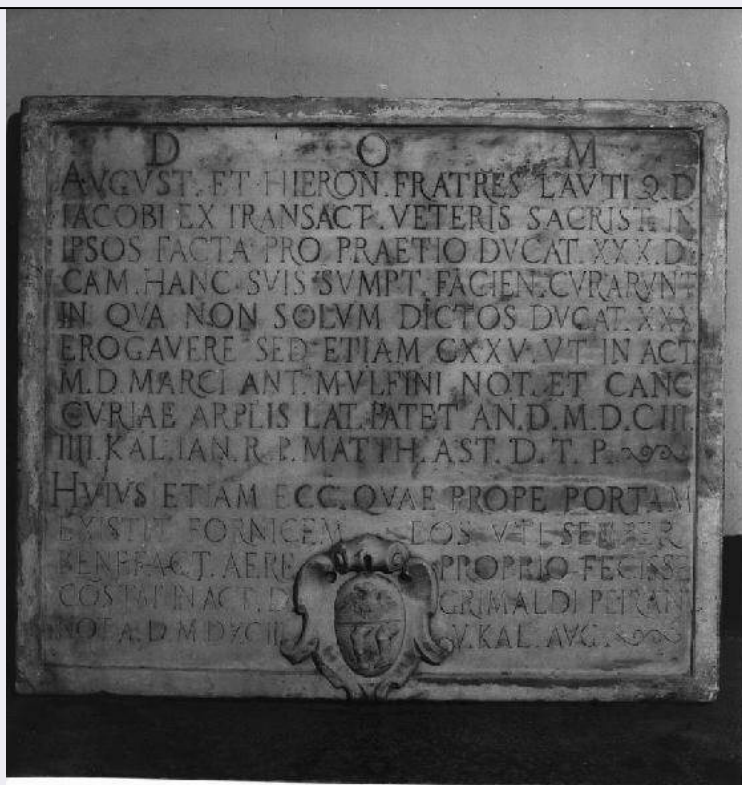 D O M
AVGVST. ET HIERON. FRATRES LAVTI Q. D
IACOBI EX TRANSACT. VETERIS SACRIST. IN
IPSOS FACTA PRO PRAETIO DVCAT. XXX. D
CAM. HANC SVIS SVMPT. FACIEN. CVRARVNT
IN QVA NON SOLVM DICTOS DVCAT. XXX
EROGAVERE SED ETIAM CXXV. VT IN ACT
M. D MARCI ANT. MVLFINI NOT. ET CANC
CVRIAE ARPLIS LAT. PATET AN. D. M. D. CIII.
IIII. KAL. IAN. R. P. MATTH. AST. D. T. P.
HVIVS ETIAM ECC. QVAE PROPE PORTAM
FORNICEM EOS VTI SEMPER
BENEFACT. AERE PROPRIO FECISSE
COSTAT IN ACT. D GRIMALDI
NOT. A. D. M V. KAL. AVG.